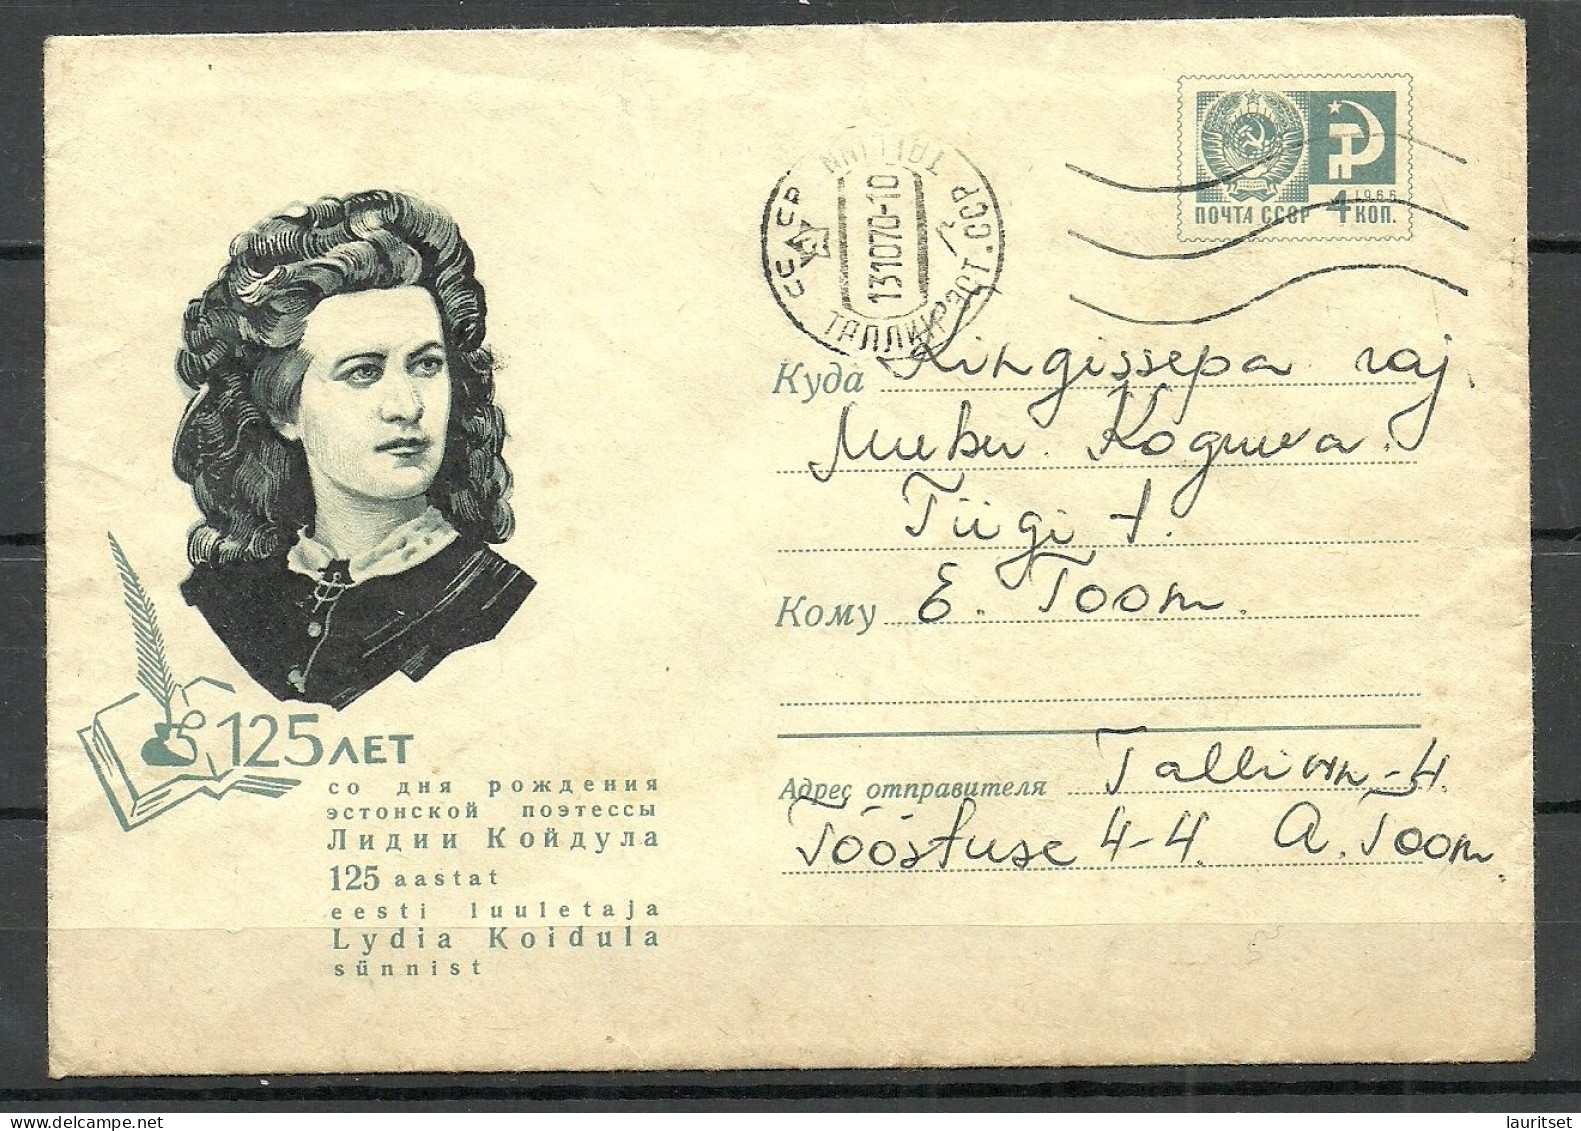 ПОЧТА СССР 4 КОП.
1966
TALLINN
131070-10
ТАЛЛИН ЭСТ. ССР
Куда Kingissepa raj.
Kodu
Tiigi 1.
Кому E. Toom.
Адрес отправителя Tallinn-4.
Tööstuse 4-4. A. Toom
125 ЛЕТ
со дня рождения
эстонской поэтессы
Лидии Койдула
125 aastat
eesti luuletaja
Lydia Koidula
sünnist
lauritset